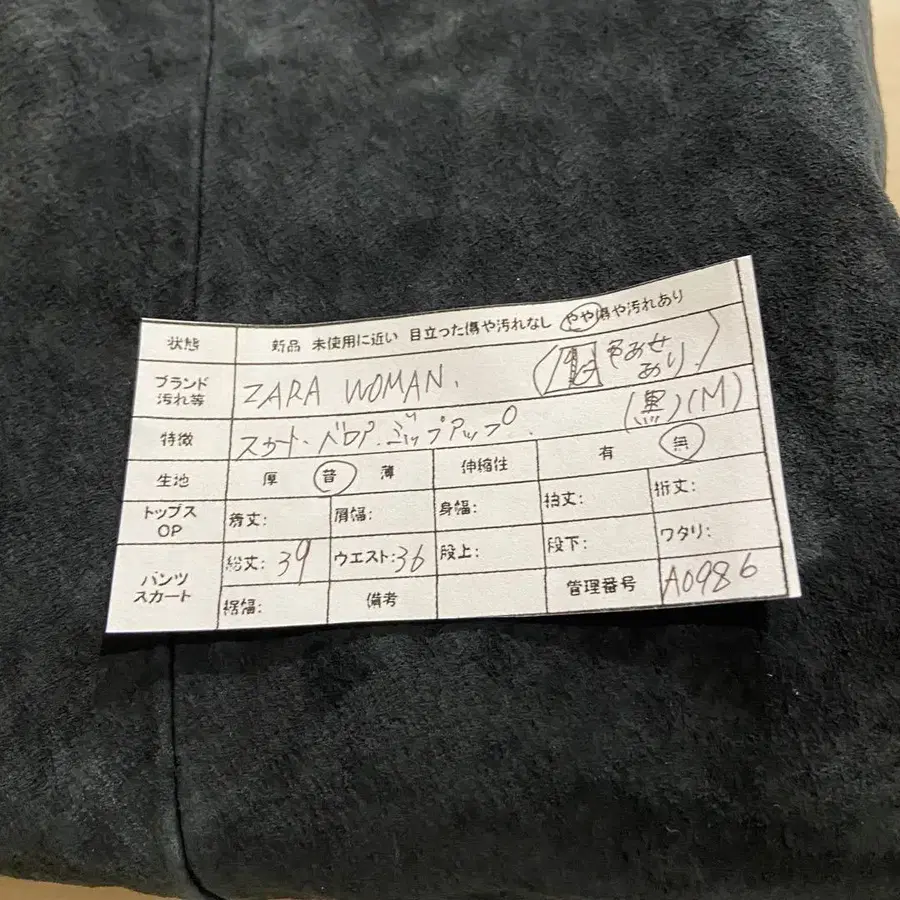 状態 新品 未使用に近い 目立った傷や汚れなし やや傷や汚れあり
ブランド 汚れ等 ZARA WOMAN. (色あせあり)
特徴 スカート・ベロア・ジップアップ. (黒)(M)
生地 厚 普 薄 伸縮性 有 無
トップス OP 着丈: 肩幅: 身幅: 袖丈: 裄丈:
パンツ スカート 総丈: 39 ウエスト: 36 股上: 股下: ワタリ:
裾幅: 備考 管理番号 A0986